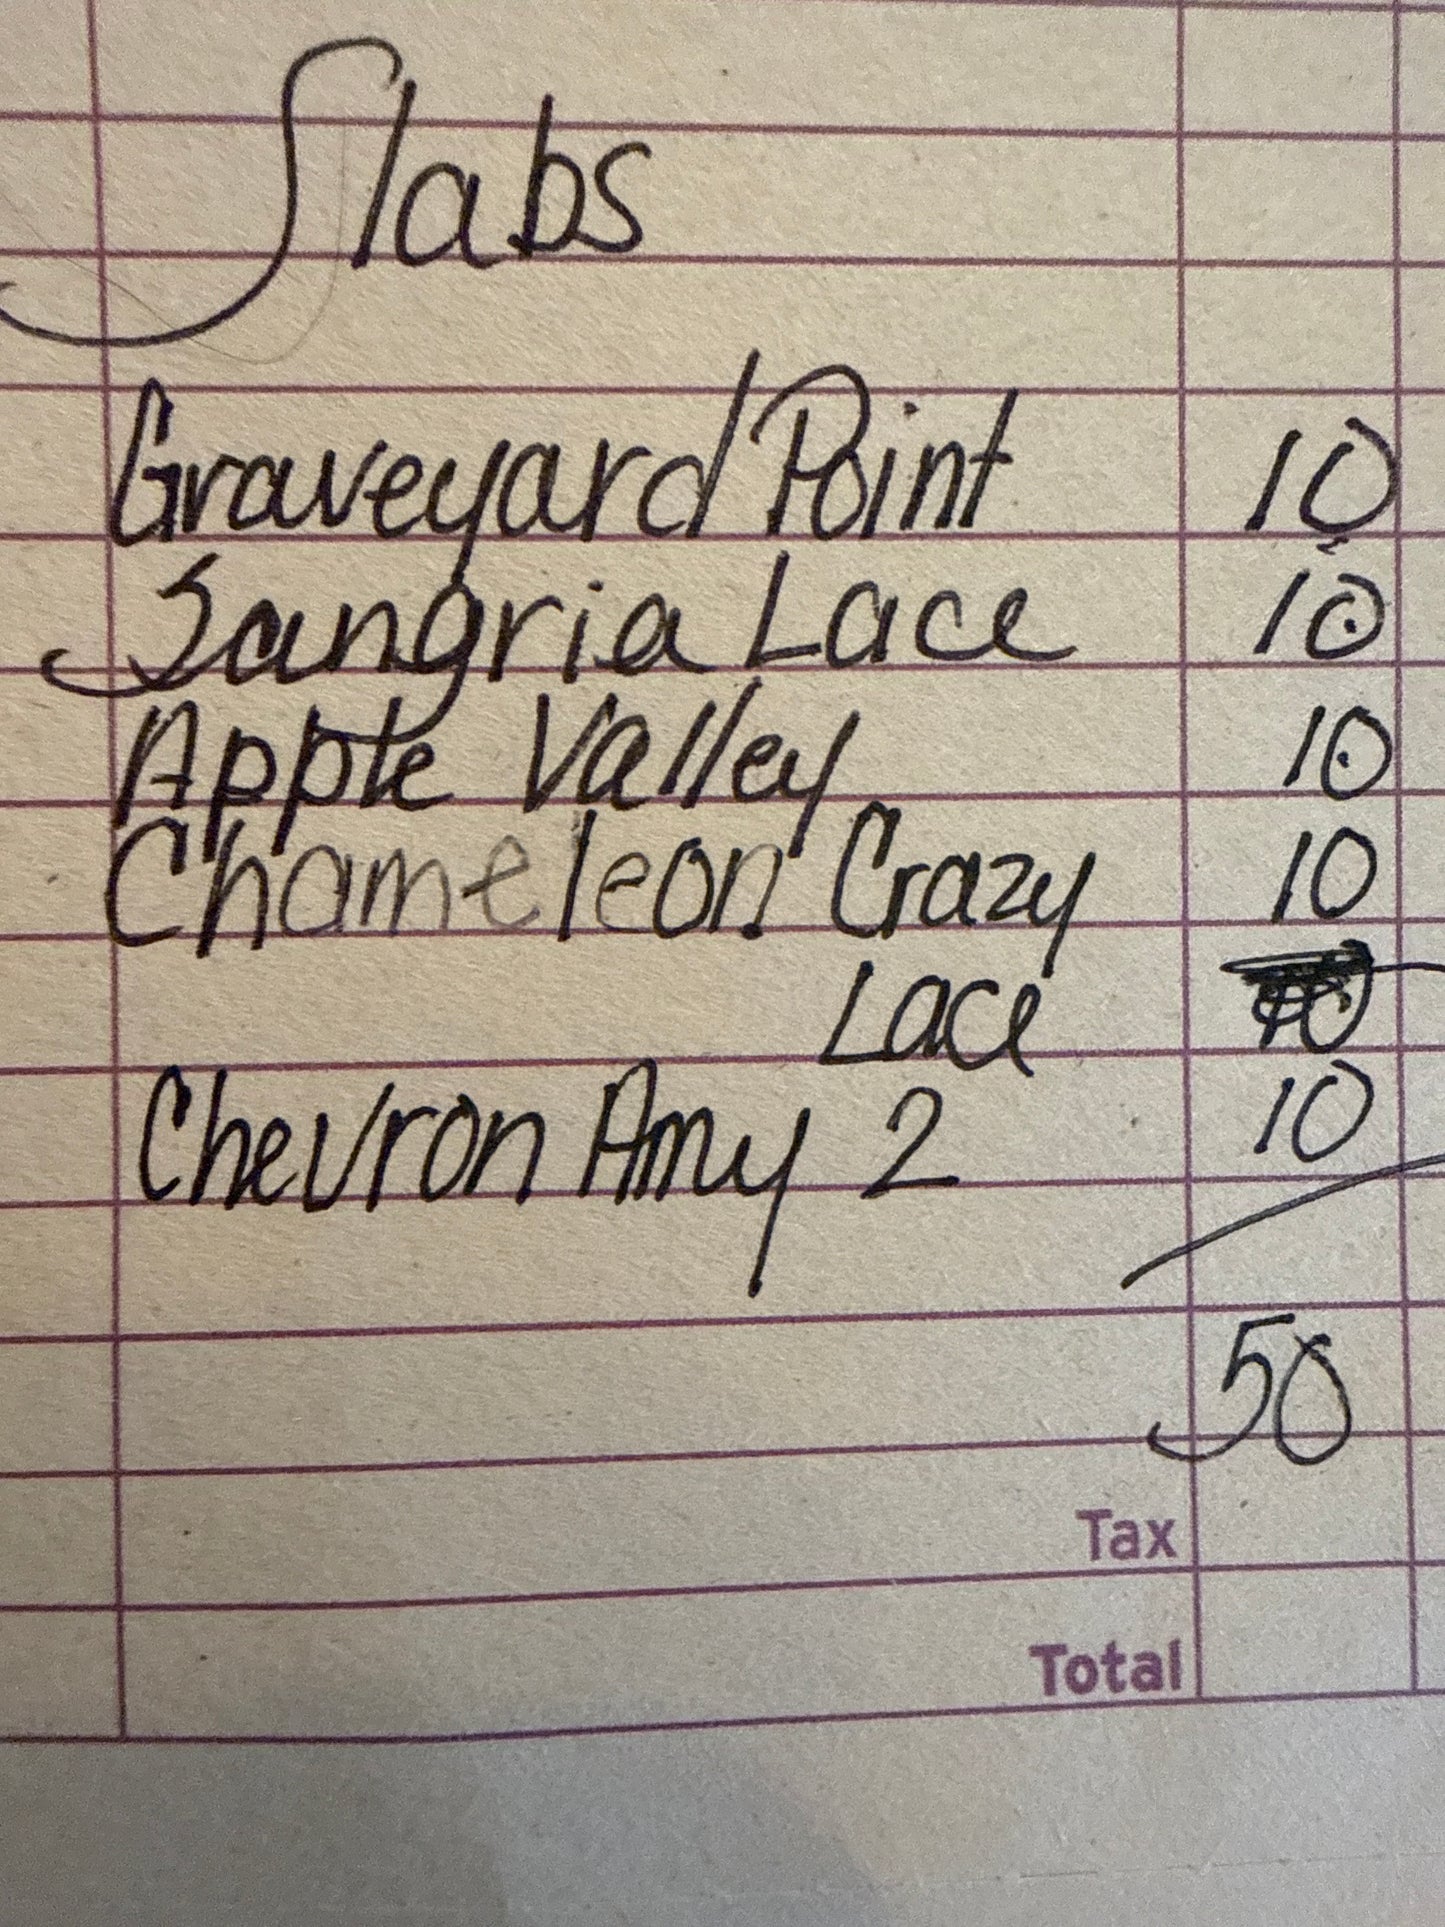 Slabs
Graveyard Point 10
Sangria Lace 10
Apple Valley 10
Chameleon Crazy 10
Lace
Chevron Amy 2 10
50
Tax
Total